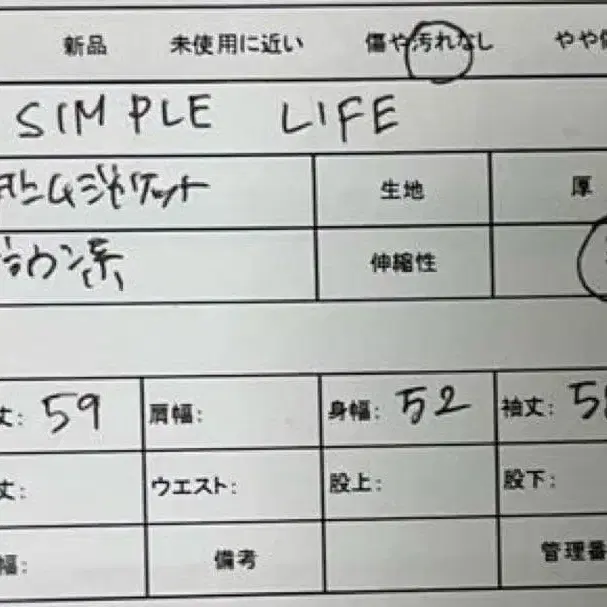 新品 未使用に近い 傷や汚れなし やや
SIMPLE LIFE
デニムジャケット 生地 厚
ブラウン系 伸縮性
丈: 59 肩幅: 身幅: 52 袖丈: 5
丈: ウエスト: 股上: 股下:
幅: 備考 管理番